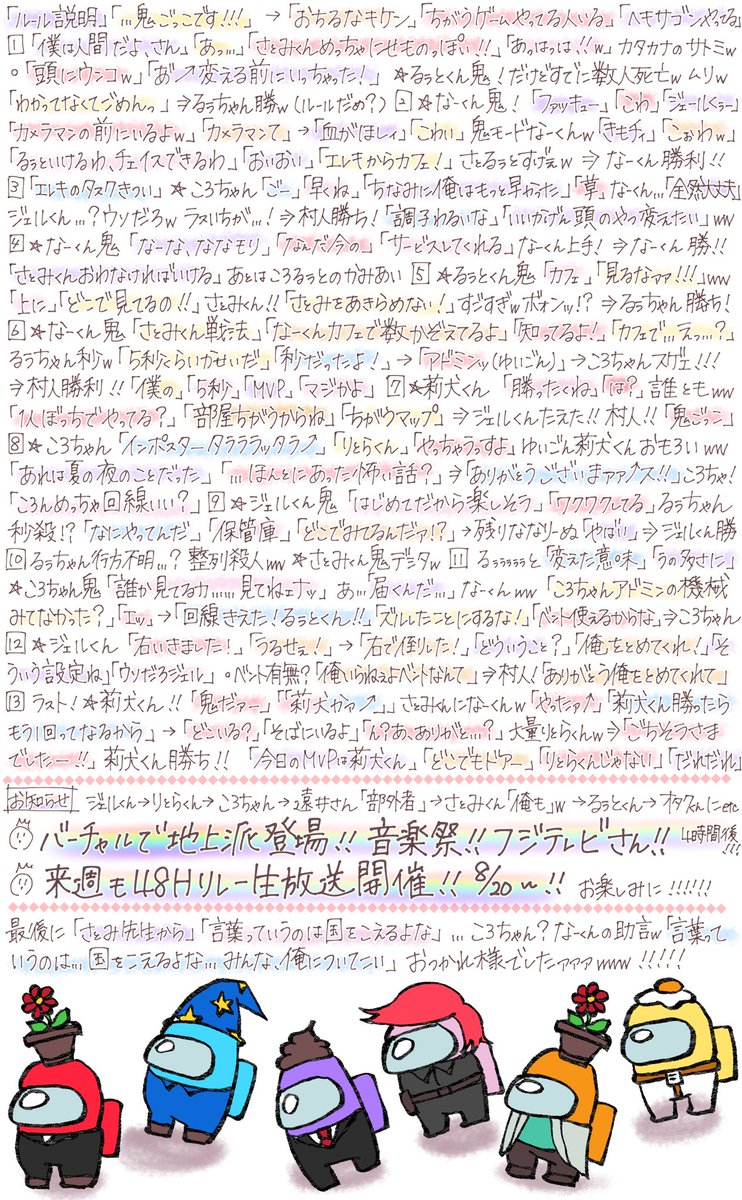 「ルール説明」「…鬼ごっこです!!!」 → 「おちるなキケン」「ちがうゲームやってる人いる」「ヘキサゴンやってる」
1 「僕は人間だよ、さん」「あっ…」「さとみくんめっちゃにせものっぽい!!」「あっはっは!!w」カタカナのサトミw
。「頭にウンコw」「あ゛↗変える前にいっちゃった!」 ☆るぅとくん鬼!だけどすでに数人死亡w ムリw
「わかってなくてごめんっ」⇒るぅちゃん勝w(ルールだめ?) 2 ☆なーくん鬼!「ファッキュー」「こわ」「ジェールくぅー」
「カメラマンの前にいるよw」「カメラマンて」→「血がほしィ」「こわい」鬼モードなーくんw「きもチィ」「こぉわw」
「るぅといけるわ、チェイスできるわ」「おぃおい」「エレキからカフェ!」さとるぅとすげぇw ⇒ なーくん勝利!!
3 「エレキのタスクきつい」☆ころちゃん「ごー」「早くね」「ちなみに俺はもっと早かった」「草」なーくん…「全然大丈夫」
ジェルくん…?ウソだろw ラスいちが…!⇒村人勝ち!「調子わるいな」「いいかげん頭のやつ変えたい」ww
4 ☆なーくん鬼「なーな、ななもり」「なんだ今の」「サービスしてくれる」なーくん上手!⇒なーくん勝!!
「さとみくんおわなければいける」あとはころるぅとのかみあい 5 ☆るぅとくん鬼「カフェ」「見るなァァ!!!」ww
「上に」「どこで見てるの!!」さとみくん!!「さとみをあきらめない!」すじすぎwボォンッ!?⇒るぅちゃん勝ち!
6 ☆なーくん鬼「さとみくん戦法」「なーくんカフェで数かぞえてるよ」「知ってるよ!」「カフェで…えっ…?」
るぅちゃん秒w「5秒くらいかせいだ」「秒だったよ!」→「アドミンッ(ゆいごん)」→ころちゃんスゲェ!!!
⇒村人勝利!!「僕の」「5秒」「MVP」「マジかよ」 7 ☆莉犬くん「勝ったくね」「は?」誰ともww
「1人ぼっちでやってる?」「部屋ちがうからね」「ちがうマップ」⇒ジェルくんたえた!!村人!!「鬼ごっこ」
8 ☆ころちゃん「インポスタータラララッタラ↗」「りとらくん」「やっちゃうっすよ」ゆいごん莉犬くんおもろいww
「あれは夏の夜のことだった」「…ほんとにあった怖い話?」⇒「ありがとうございまァァ↗ス!!」ころちゃ!
「ころんめっちゃ回線いい?」 9 ☆ジェルくん鬼「はじめてだから楽しそう」「ワクワクしてる」るぅちゃん
秒殺!?「なにやってんだ」「保管庫」「どこでみてるんだァ!?」→残りななりーぬ「やばい」⇒ジェルくん勝
10 るぅちゃん行方不明…?整列殺人ww ☆さとみくん鬼デシタw 11 るぅぅぅぅぅと変えた意味「うの多さに」
☆ころちゃん鬼「誰か見てるカ……見てねェナッ」あ…届くんだ…なーくんww「ころちゃんアドミンの機械
みてなかった?」「エッ」→「回線きえた!るぅとくん!!」「ズルしたことにするな!」「ベント使えるからな」⇒ころちゃん
12 ☆ジェルくん「右いきました!」「うるせぇ!」→「右で倒した!」「どういうこと?」「俺をとめてくれ!」「そ
ういう設定ね」「ウソだろジェル」。ベント有無?「俺いらねぇよベントなんて」⇒村人!「ありがとう俺をとめてくれて」
13 ラスト!☆莉犬くん!!「鬼だァー」「「莉犬かァ↗」」さとみくんになーくんw「やったァ↗」「莉犬くん勝ったら
もう1回ってなるから」→「どこいる?」「そばにいるよ」「ん?あ、ありがと…?」大量りとらくんw⇒「ごちそうさま
でしたー!!」莉犬くん勝ち!!「今日のMVPは莉犬くん」「どこでもドアー」「りとらくんじゃない」「だれだれ」
お知らせ ジェルくん→りとらくん→ころちゃん→遠井さん「部外者」→さとみくん「俺も」w→るぅとくん→オタクくんにetc
バーチャルで地上派登場!!音楽祭!!フジテレビさん!! 4時間後!!!
来週も48Hリレー生放送開催!!8/20〜!! お楽しみに!!!!!!
最後に「さとみ先生から」「言葉っていうのは国をこえるよな」…ころちゃん?なーくんの助言w「言葉って
いうのは…国をこえるよな…みんな、俺についてこい」おっかれ様でしたァァァwww!!!!!